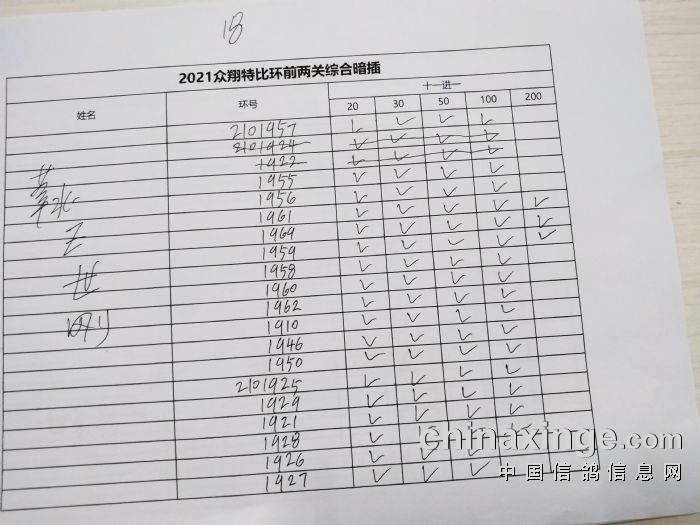 18
2021众翔特比环前两关综合暗插
姓名 环号 十一进一
20 30 50 100 200
2101957 ✓ ✓ ✓ ✓
2101924 ✓ ✓ ✓ ✓
1922 ✓ ✓ ✓ ✓
1955 ✓ ✓ ✓ ✓
1956 ✓ ✓ ✓ ✓
1961 ✓ ✓ ✓ ✓ ✓
1969 ✓ ✓ ✓ ✓ ✓
王 1959 ✓ ✓ ✓ ✓ ✓
1958 ✓ ✓ ✓ ✓
世 1960 ✓ ✓ ✓ ✓
1962 ✓ ✓ ✓ ✓
明 1910 ✓ ✓ ✓ ✓
1946 ✓ ✓ ✓ ✓
1950 ✓ ✓ ✓ ✓
2101925 ✓ ✓ ✓ ✓
1929 ✓ ✓ ✓ ✓
1921 ✓ ✓ ✓ ✓
1928 ✓ ✓ ✓ ✓
1926 ✓ ✓ ✓
1927 ✓ ✓ ✓
chinaxinge.com
中国信鸽信息网